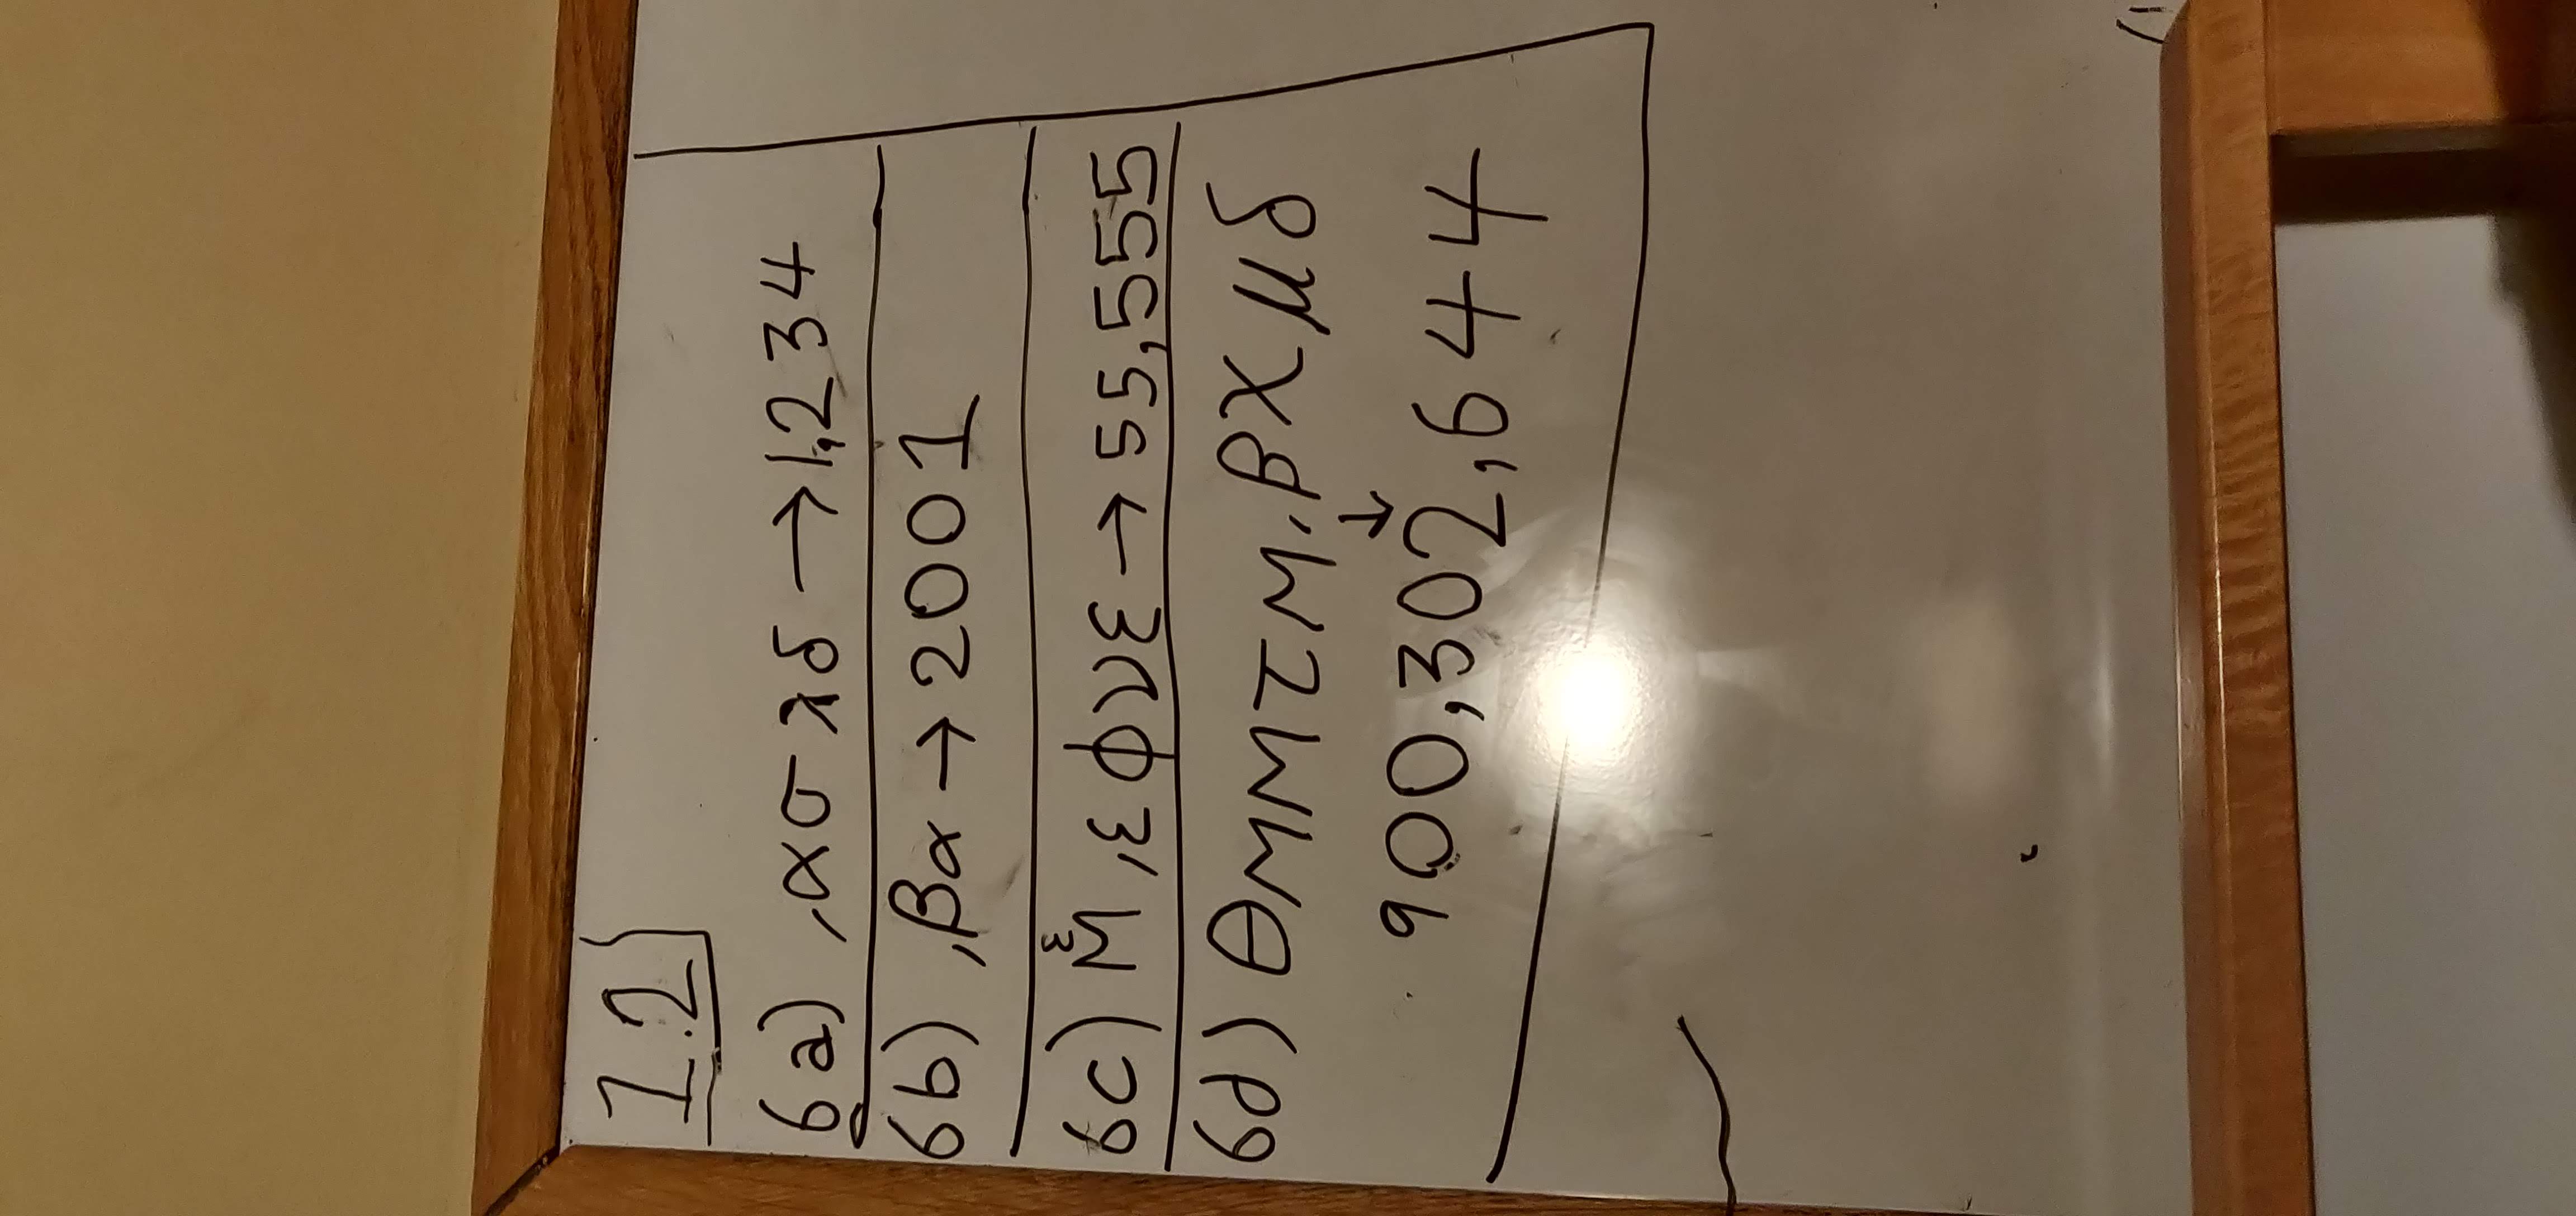 1.2
6a) ,ασλδ → 1,234
6b) ,βα → 2001
ε
6c) M ,εφνε → 55,555
6d) θMMτM,βχμδ
↓
900,302,644